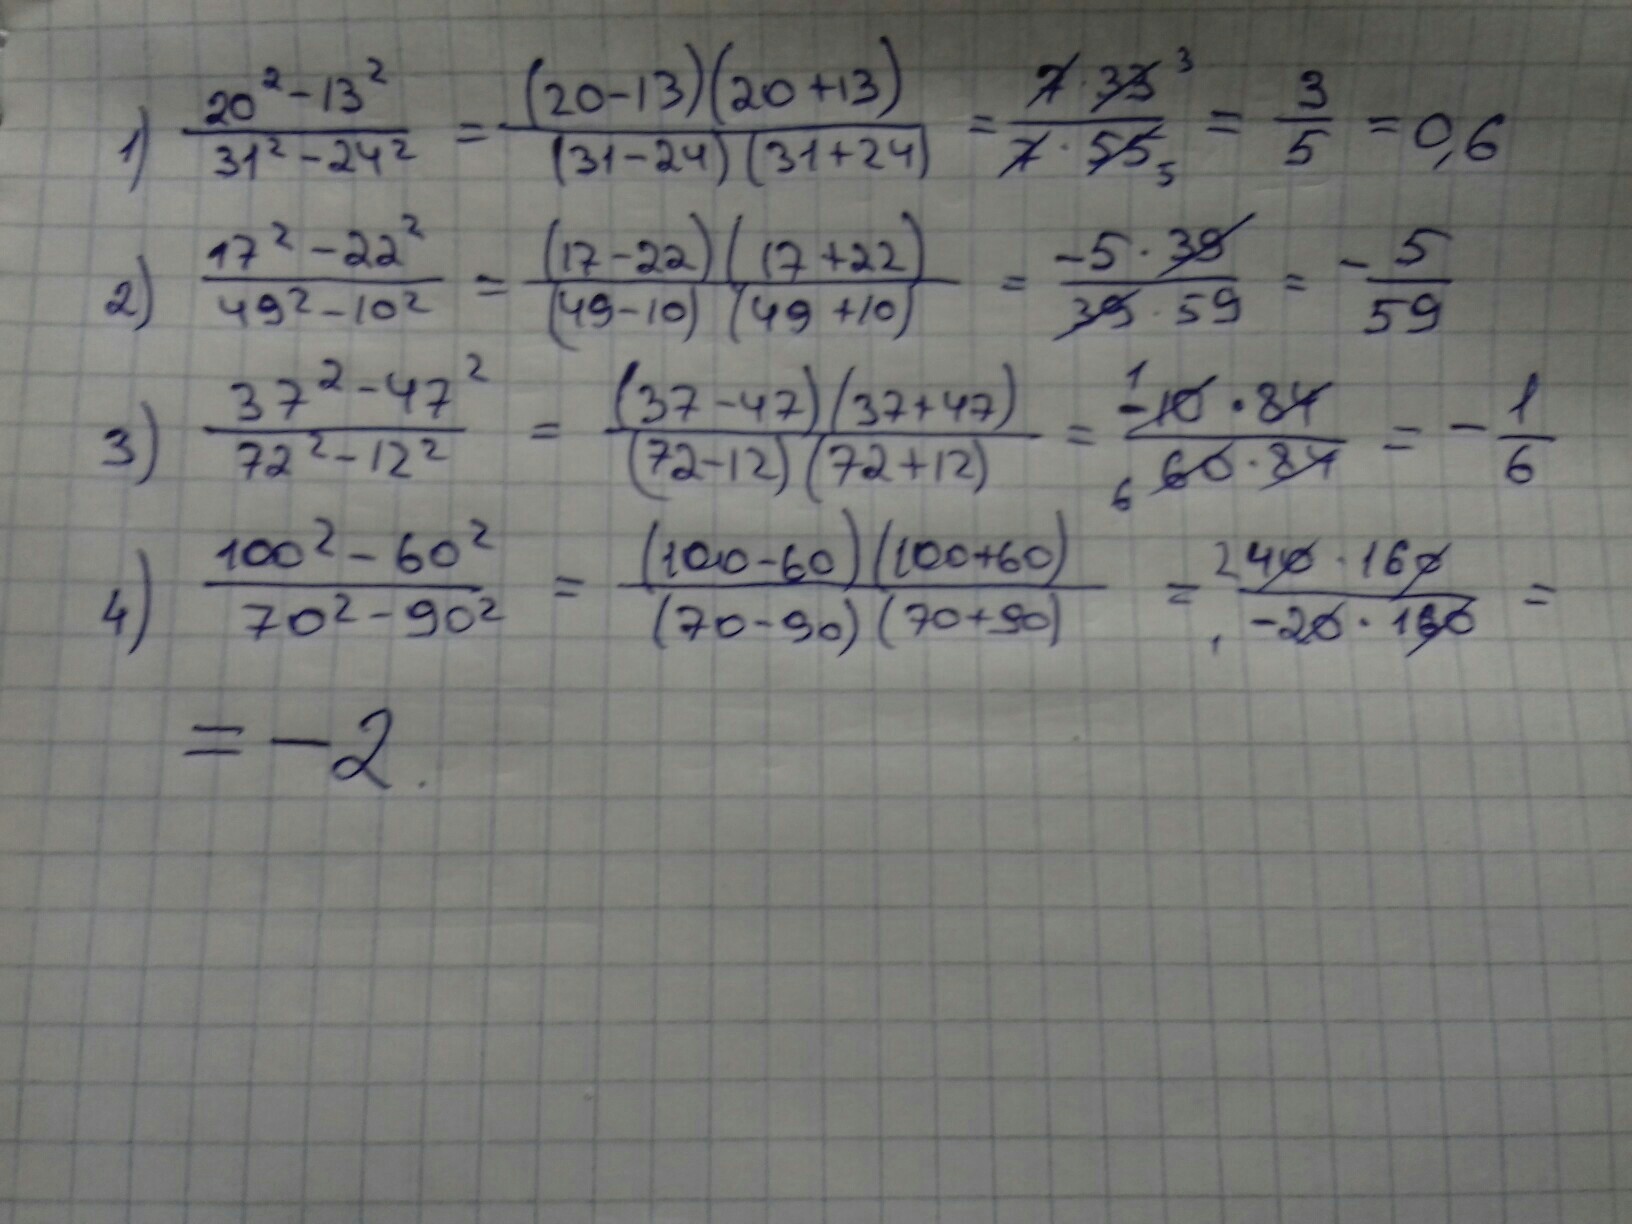 1) (20² - 13²)/(31² - 24²) = ((20-13)(20+13))/((31-24)(31+24)) = (7 · 33 3)/(7 · 55 5) = 3/5 = 0,6
2) (17² - 22²)/(49² - 10²) = ((17-22)(17+22))/((49-10)(49+10)) = (-5 · 39)/(39 · 59) = - 5/59
3) (37² - 47²)/(72² - 12²) = ((37-47)(37+47))/((72-12)(72+12)) = (1 -10 · 84)/(6 60 · 84) = - 1/6
4) (100² - 60²)/(70² - 90²) = ((100-60)(100+60))/((70-90)(70+90)) = (2 40 · 160)/(1 -20 · 160) =
= -2.